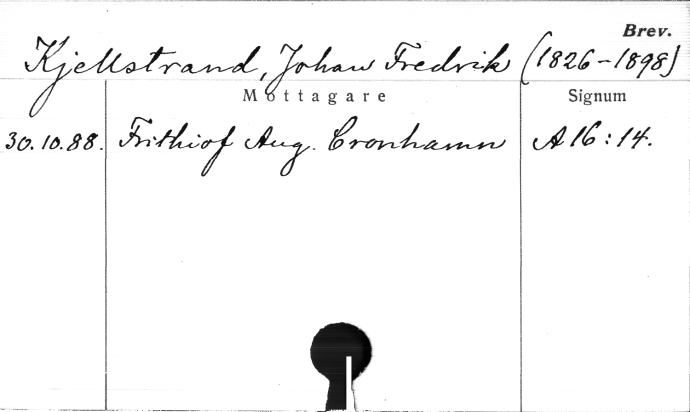 Brev.
Kjellstrand, Johan Fredrik (1826-1898)
Mottagare Signum
30.10.88. Frithiof Aug. Cronhamn A16:14.